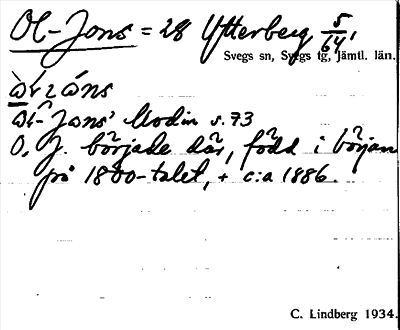 Ol-Jons = 28 Ytterberg 5/64,
Svegs sn, Svegs tg, Jämtl. län.
Ol-Jons' Modin s. 73
O. J. började där, född i början
på 1800-talet, + c:a 1886.
C. Lindberg 1934.